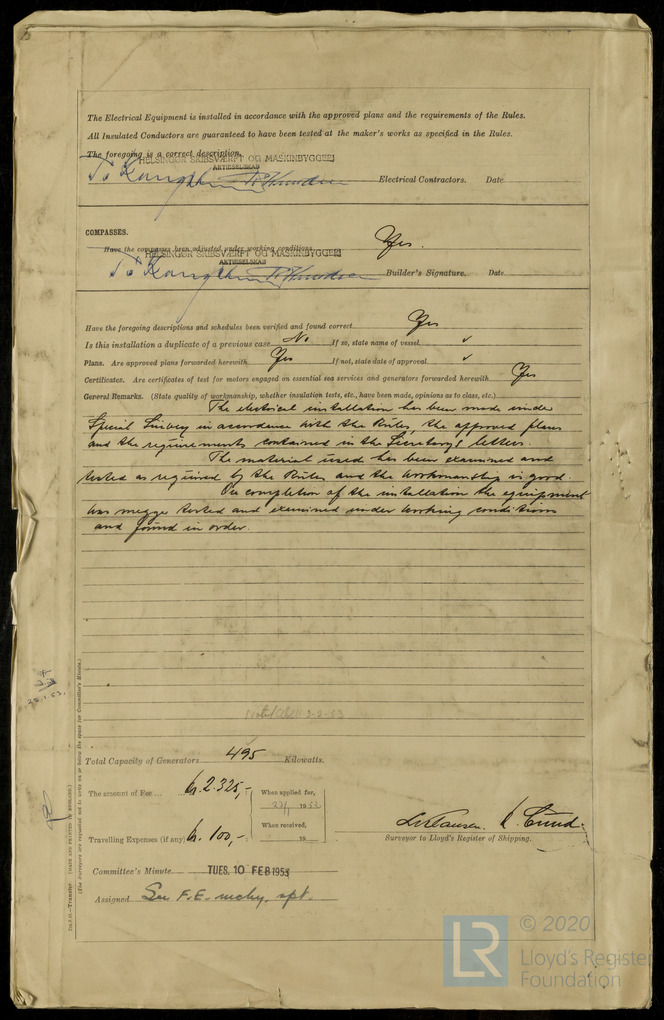 The Electrical Equipment is installed in accordance with the approved plans and the requirements of the Rules.
All Insulated Conductors are guaranteed to have been tested at the maker's works as specified in the Rules.
The foregoing is a correct description,
HELSINGØR SKIBSVÆRFT OG MASKINBYGGERI
AKTIESELSKAB
Electrical Contractors. Date
COMPASSES.
Have the compasses been adjusted under working conditions Yes.
HELSINGØR SKIBSVÆRFT OG MASKINBYGGERI
AKTIESELSKAB
Builder's Signature. Date
Have the foregoing descriptions and schedules been verified and found correct Yes
Is this installation a duplicate of a previous case No If so, state name of vessel ✓
Plans. Are approved plans forwarded herewith Yes If not, state date of approval ✓
Certificates. Are certificates of test for motors engaged on essential sea services and generators forwarded herewith Yes
General Remarks. (State quality of workmanship, whether insulation tests, etc., have been made, opinions as to class, etc.)
The electrical installation has been made under
Special Survey in accordance with the Rules, the approved plans
and the requirements contained in the Secretary's letters.
The material used has been examined and
tested as required by the Rules and the workmanship is good.
On completion of the installation the equipment
was megge tested and examined under working conditions
and found in order.
2-2-53
Total Capacity of Generators 495 Kilowatts.
The amount of Fee ... kr. 2.325,- When applied for,
19
Travelling Expenses (if any) kr. 100,- When received,
19
Surveyor to Lloyd's Register of Shipping.
Committee's Minute TUES. 10 FEB 1953
Assigned See F.E. mchy. rpt.
Transfer. (MADE AND PRINTED IN ENGLAND.)
(The Surveyors are requested not to write on or below the space for Committee's Minute.)
LR
© 2020
Lloyd's Register
Foundation